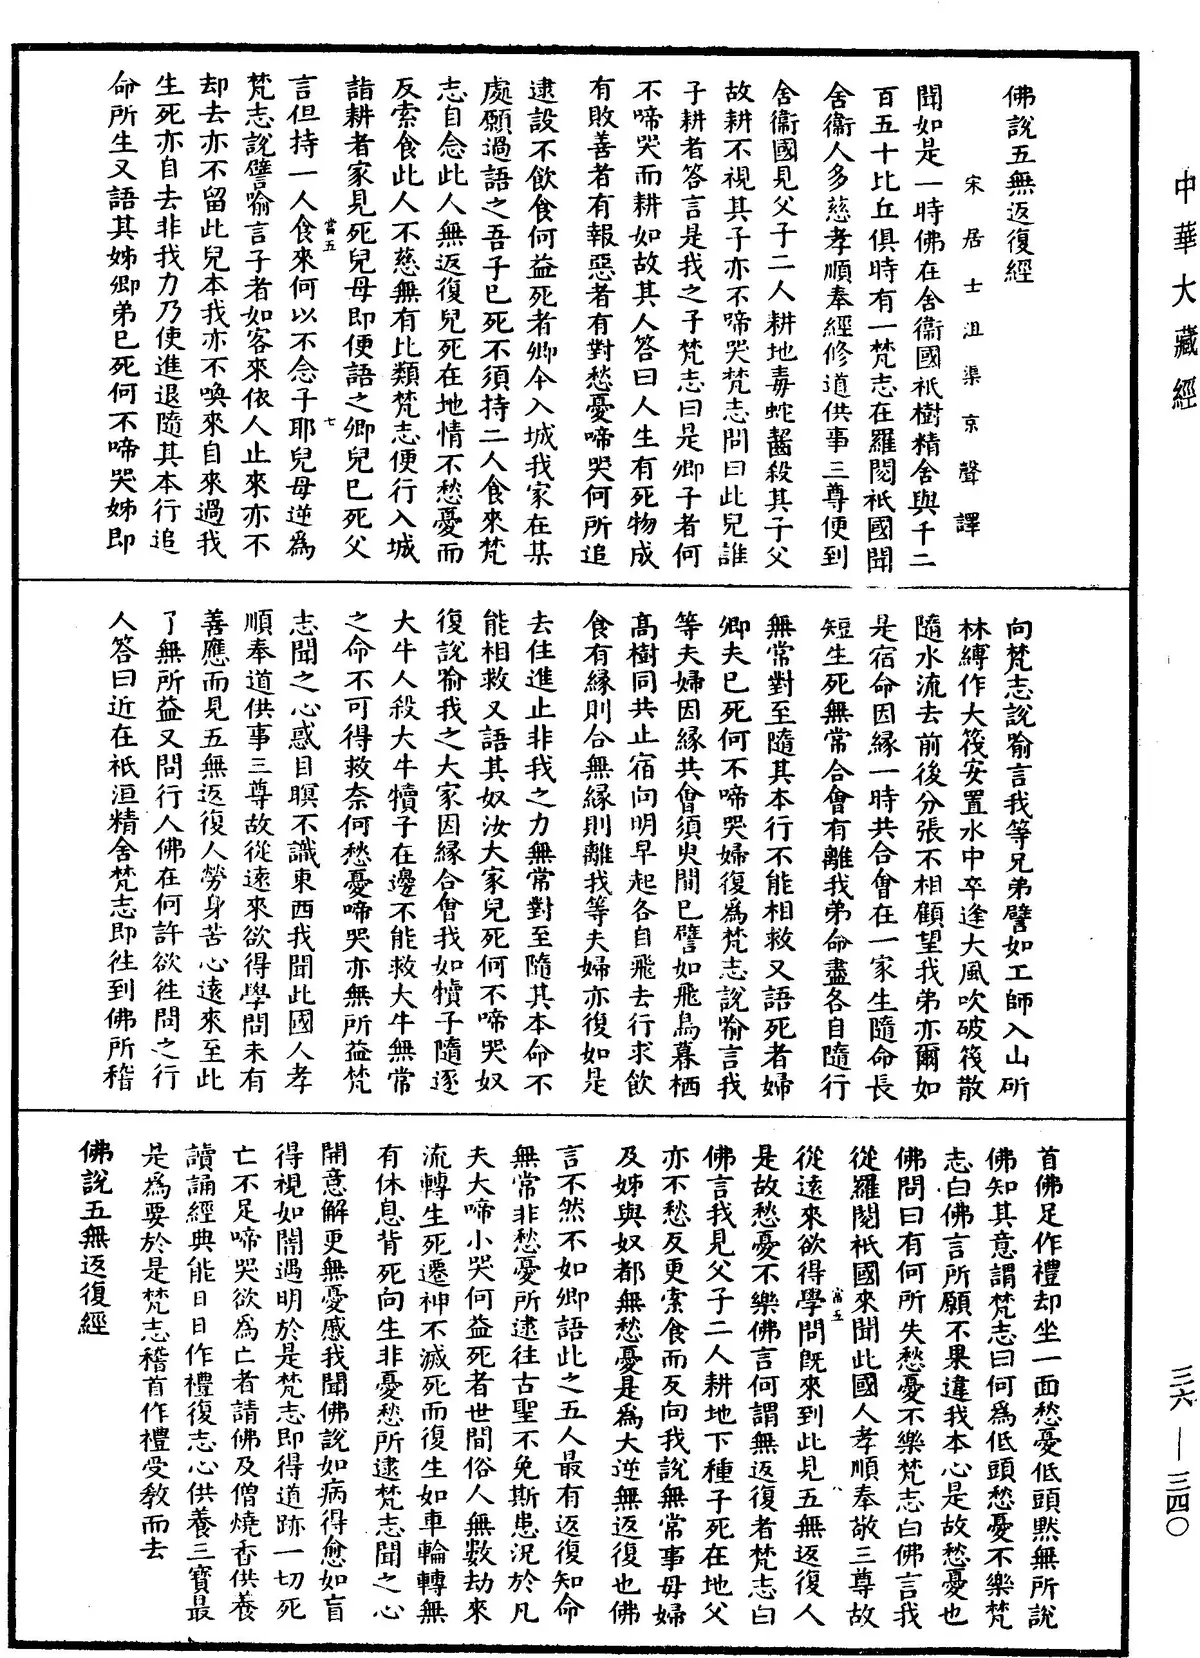 中華大藏經
佛說五無返復經
宋居士沮渠京聲譯
聞如是一時佛在舍衞國祇樹精舍與千二
百五十比丘俱時有一梵志在羅閱祇國聞
舍衞人多慈孝順奉經修道供事三尊便到
舍衞國見父子二人耕地毒蛇齧殺其子父
故耕不視其子亦不啼哭梵志問曰此兒誰
子耕者答言是我之子梵志曰是卿子者何
不啼哭而耕如故其人答曰人生有死物成
有敗善者有報惡者有對愁憂啼哭何所追
逮設不飲食何益死者卿今入城我家在某
處願過語之吾子已死不須持二人食來梵
志自念此人無返復兒死在地情不愁憂而
反索食此人不慈無有比類梵志便行入城
詣耕者家見死兒母即便語之卿兒已死父
當五
七
言但持一人食來何以不念子耶兒母逆爲
梵志說譬喻言子者如客來依人止來亦不
却去亦不留此兒本我亦不喚來自來過我
生死亦自去非我力乃使進退隨其本行追
命所生又語其姊卿弟已死何不啼哭姊即
向梵志說喻言我等兄弟譬如工師入山斫
林縛作大筏安置水中卒逢大風吹破筏散
隨水流去前後分張不相顧望我弟亦爾如
是宿命因緣一時共合會在一家生隨命長
短生死無常合會有離我弟命盡各自隨行
無常對至隨其本行不能相救又語死者婦
卿夫已死何不啼哭婦復爲梵志說喻言我
等夫婦因緣共會須臾間已譬如飛鳥暮栖
高樹同共止宿向明早起各自飛去行求飲
食有緣則合無緣則離我等夫婦亦復如是
去住進止非我之力無常對至隨其本命不
能相救又語其奴汝大家兒死何不啼哭奴
復說喻我之大家因緣合會我如犢子隨逐
大牛人殺大牛犢子在邊不能救大牛無常
之命不可得救奈何愁憂啼哭亦無所益梵
志聞之心惑目瞑不識東西我聞此國人孝
順奉道供事三尊故從遠來欲得學問未有
善應而見五無返復人勞身苦心遠來至此
了無所益又問行人佛在何許欲往問之行
人答曰近在祇洹精舍梵志即往到佛所稽
首佛足作禮却坐一面愁憂低頭默無所說
佛知其意謂梵志曰何爲低頭愁憂不樂梵
志白佛言所願不果違我本心是故愁憂也
佛問曰有何所失愁憂不樂梵志白佛言我
從羅閱祇國來聞此國人孝順奉敬三尊故
當五
八
從遠來欲得學問旣來到此見五無返復人
是故愁憂不樂佛言何謂無返復者梵志白
佛言我見父子二人耕地下種子死在地父
亦不愁反更索食而反向我說無常事母婦
及姊與奴都無愁憂是爲大逆無返復也佛
言不然不如卿語此之五人最有返復知命
無常非愁憂所逮往古聖不免斯患況於凡
夫大啼小哭何益死者世間俗人無數劫來
流轉生死遷神不滅死而復生如車輪轉無
有休息背死向生非憂愁所逮梵志聞之心
開意解更無憂慼我聞佛說如病得愈如盲
得視如闇遇明於是梵志即得道跡一切死
亡不足啼哭欲爲亡者請佛及僧燒香供養
讀誦經典能日日作禮復志心供養三寶最
是爲要於是梵志稽首作禮受教而去
佛說五無返復經
三六—三四〇